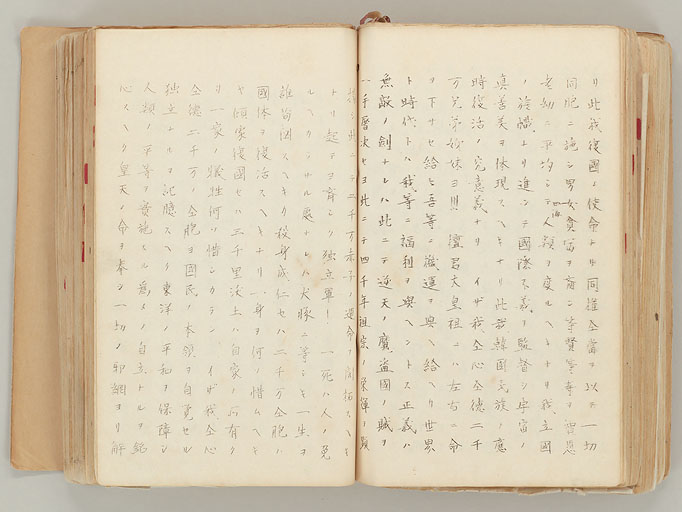 リ此我復國ノ使命ナリ同権仝富ヲ以テ一切
同胞ニ施シ男女貧富ヲ斉シ等賢等壽ヲ智愚
老幼ニ平均シテ四海人類ヲ度ルヘキナリ我立國
ノ旗幟ナリ進ンテ國際不義ヲ監督シ宇宙ノ
真善美ヲ体現スヘキナリ此我韓國民族ノ應
時復活ノ究意義ナリ イザ我仝心仝德二千
万兄弟姉妹ヨ!!! 檀君大皇祖ニハ左右ニ命
ヲ下サセ給ヒ吾等ニ機運ヲ與ヘ給ヘリ世界
ト時代トハ我等ニ福利ヲ與ヘントス正義ハ
無敵ノ剣ナレハ此ニテ逆天ノ魔盗國ノ賊ヲ
一手屠決セヨ此ニテ四千年祖宗ノ栄輝ヲ顕
シ此ニテ二千万赤子ノ運命ヲ開拓スヘキ
ナリ起ヨ 独立軍 一死ハ人ノ免
ルヘクラサル處ナレハ犬豚ニ等シキ一生ヲ
誰苟図スヘキソ殺身成仁セハ二千万仝胞ハ
國体ヲ復活スヘキナリ一身ヲ何ソ惜ムヘキ
ヤ傾家復國セハ三千里沃土ハ自家ノ占有ナ
リ一家ノ犠牲何ソ惜シカラン、イザ我仝心
仝德二千万ノ仝胞ヨ國民ノ本領ヲ自覚セル
独立ナルヲ記憶スヘク東洋ノ平和ヲ保障シ
人類ノ平等ヲ實施スル為メノ自立ナルヲ銘
心スヘク皇天ノ命ヲ奉シ一切ノ邪網ヨリ解